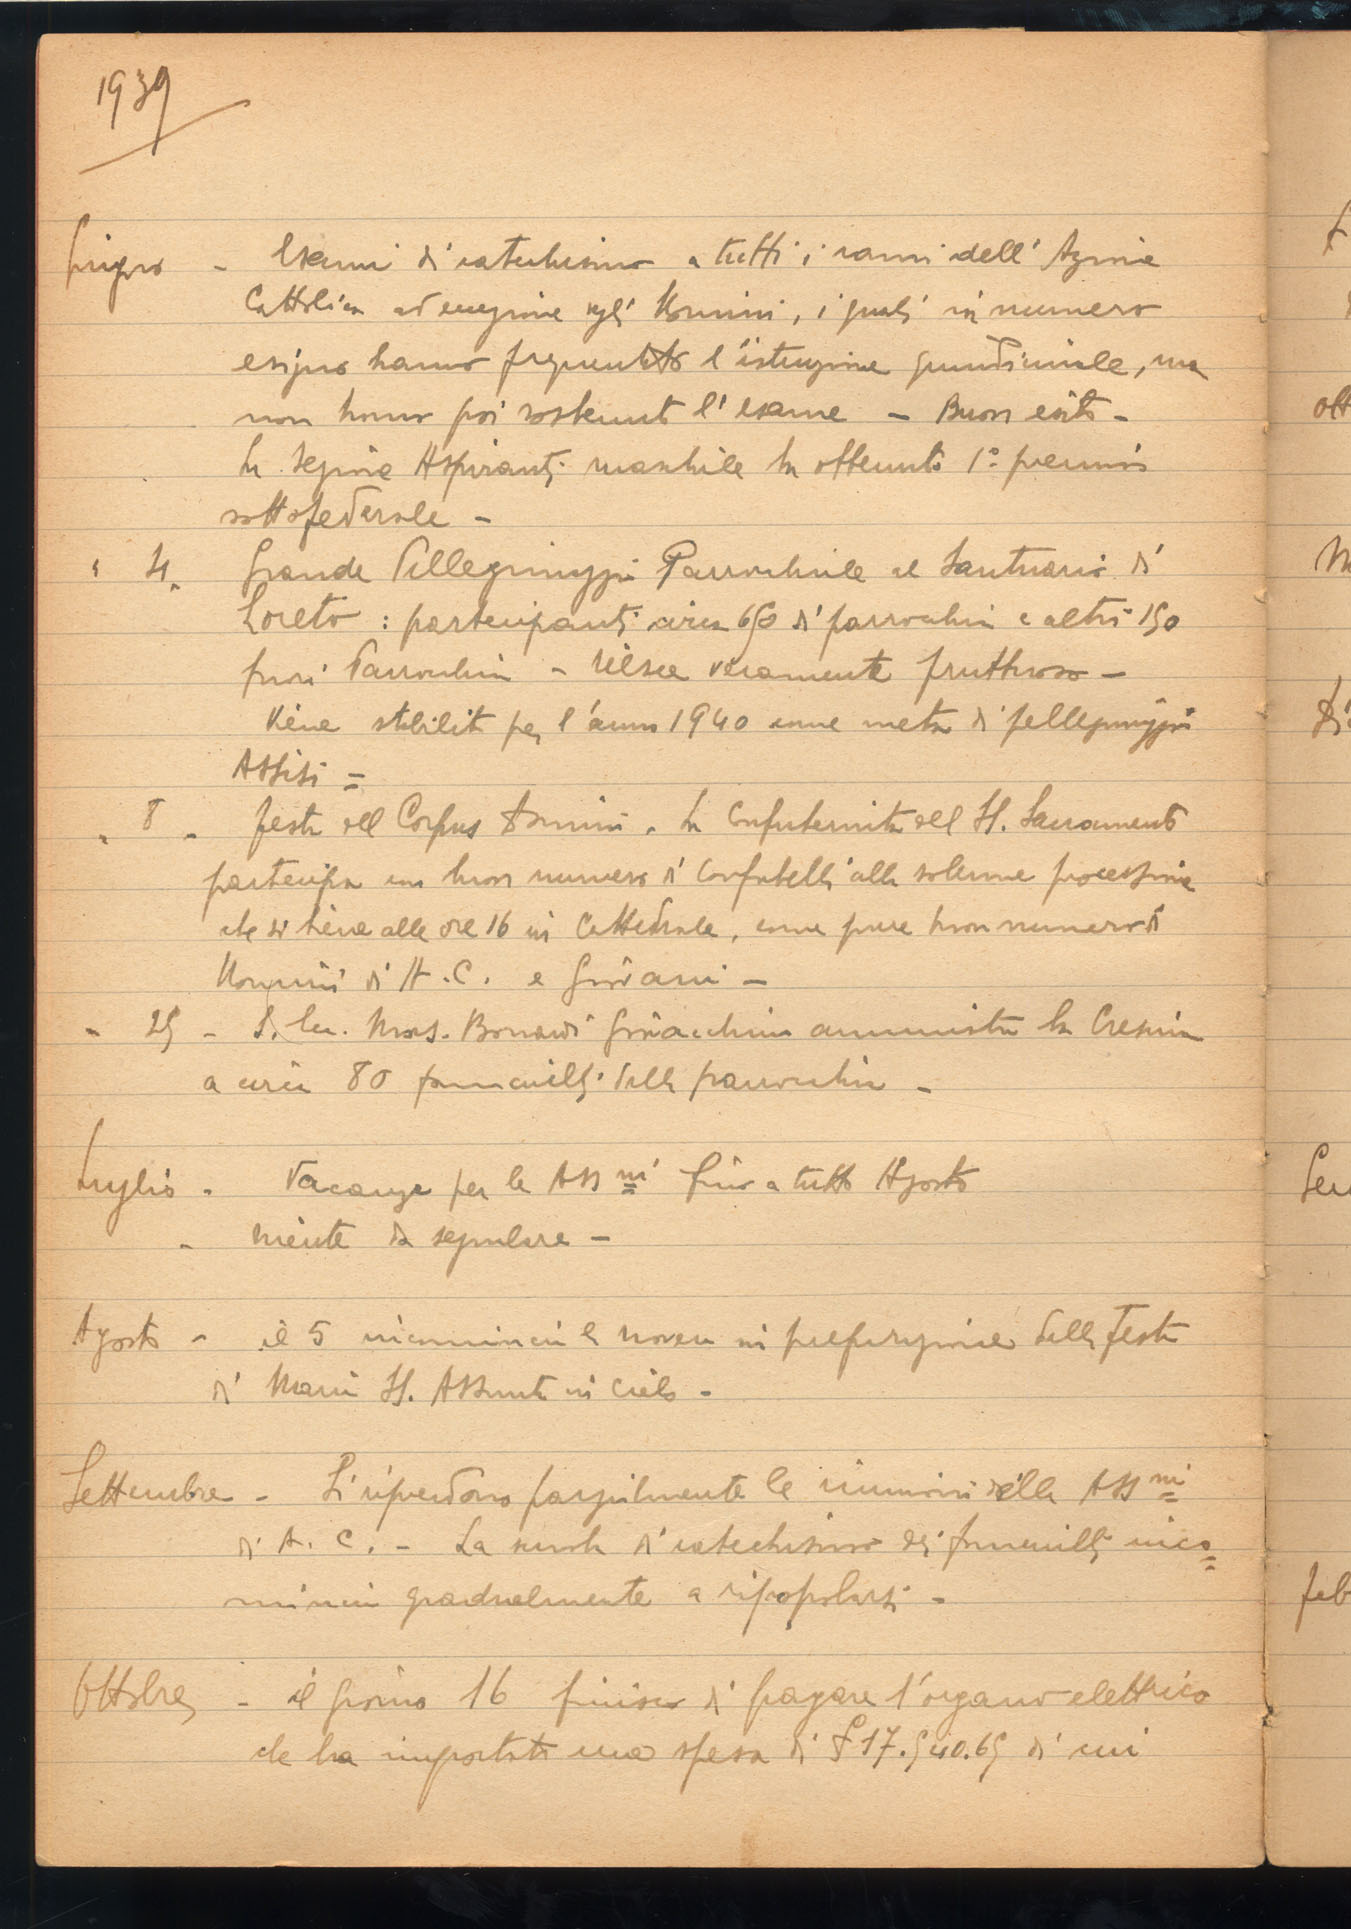 1939
Giugno - Esami di catechismo a tutti i rami dell' Azione
Cattolica ad eccezione degli Uomini, i quali in numero
esiguo hanno frequentato l'istruzione quindicinale, ma
non hanno poi sostenuto l'esame - Buon esito -
La Sezione Aspiranti maschile ha ottenuto 1° premio
sottofederale -
" 4 - Grande Pellegrinaggio Parrocchiale al Santuario di
Loreto : partecipanti circa 650 di parrocchia e altri 150
fuori Parrocchia - Riesce veramente fruttuoso -
Viene stabilito per l'anno 1940 come meta di pellegrinaggio
Assisi =
" 8 - festa del Corpus Domini - La Confraternita del SS. Sacramento
partecipa con buon numero di Confratelli alla solenne processione
che si tiene alle ore 16 in Cattedrale, come pure buon numero di
Uomini di A.C. e Giovani -
" 25 - S. Ecc. Mons. Bonardi Giovacchino amministra la Cresima
a circa 80 fanciulli della parrocchia -
Luglio - Vacanze per le Assni fino a tutto Agosto
- niente da segnalare -
Agosto - il 5 incomincia la novena in preparazione della festa
di Maria SS. Assunta in Cielo -
Settembre - Si riprendono parzialmente le riunioni delle Assni
di A. C. - La scuola di catechismo dei fanciulli inco=
mincia gradualmente a ripopolarsi -
Ottobre - il giorno 16 finisco di pagare l'organo elettrico
che ha importato una spesa di £ 17.540.65 di cui